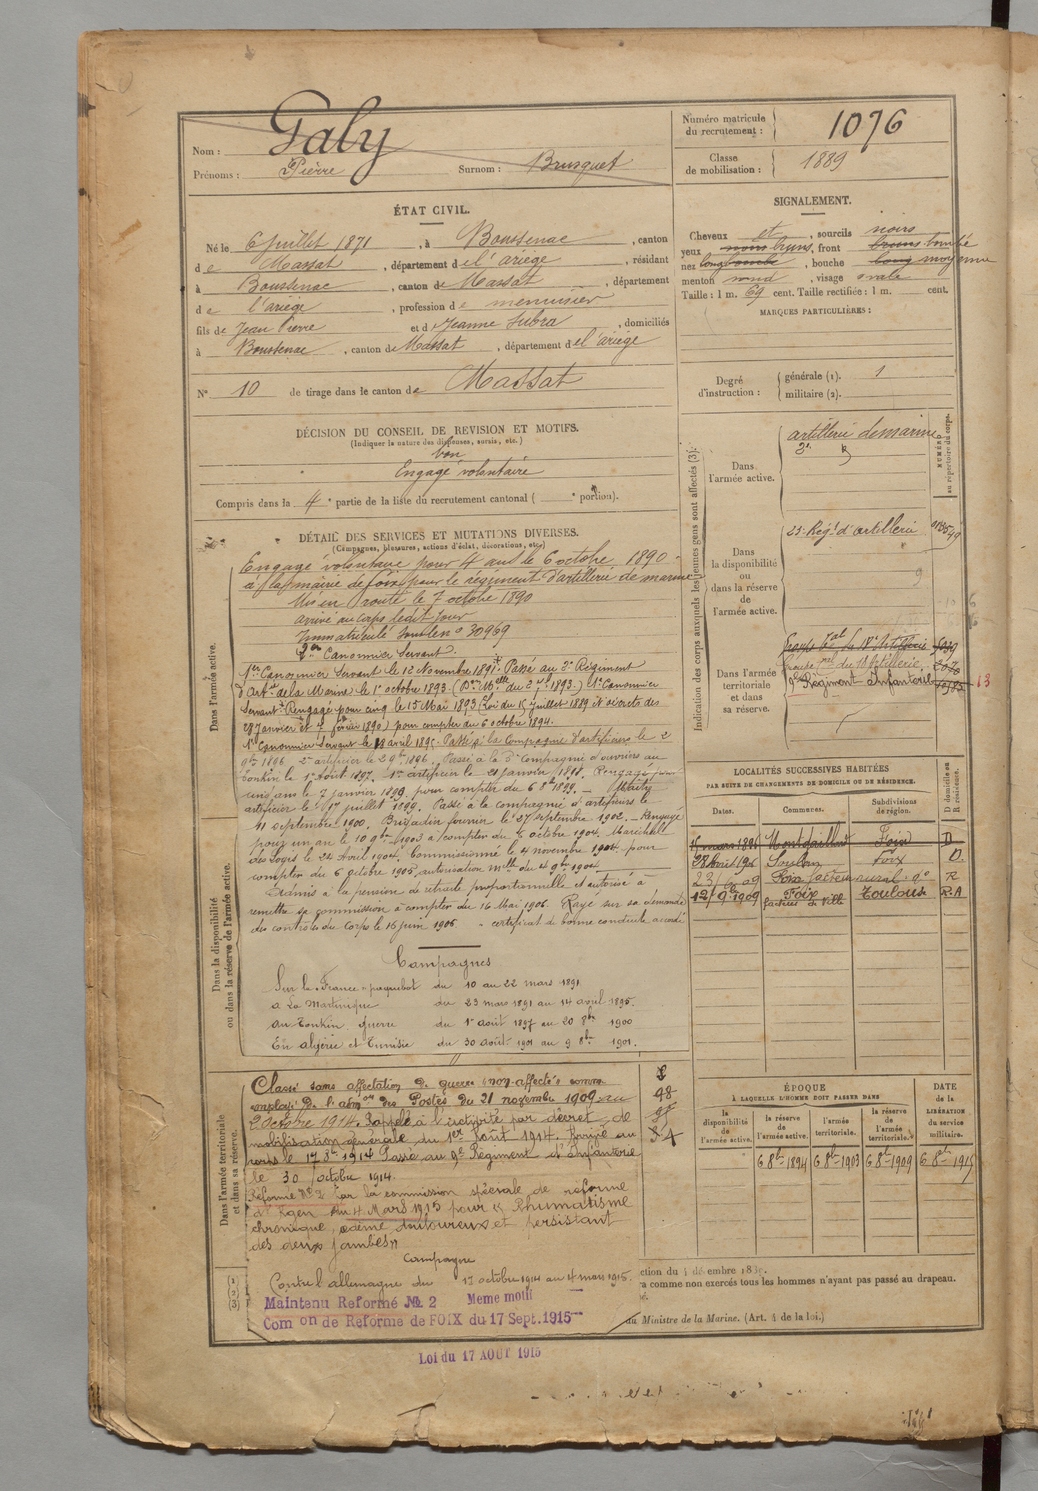 Nom : Galy
Prénoms : Pierre Surnom : Brusquet
Numéro matricule du recrutement : 1076
Classe de mobilisation : 1889
ÉTAT CIVIL.
Né le 6 juillet 1871, à Boussenac, canton
de Massat, département de l'ariège, résidant
à Boussenac, canton de Massat, département
de l'ariège, profession de menuisier
fils de Jean Pierre et de Jeanne Subra, domiciliés
à Boussenac, canton de Massat, département de l'ariège
N° 10 de tirage dans le canton de Massat
SIGNALEMENT.
Cheveux et, sourcils noirs
yeux noirs bruns, front bruns bombé
nez long bombé, bouche long moyenne
menton rond, visage ovale
Taille : 1 m. 69 cent. Taille rectifiée : 1 m. cent.
MARQUES PARTICULIÈRES :
Degré d'instruction : générale (1). 1
militaire (2).
DÉCISION DU CONSEIL DE REVISION ET MOTIFS.
(Indiquer la nature des dispenses, sursis, etc.)
bon
Engagé volontaire
Compris dans la 4e partie de la liste du recrutement cantonal ( e portion).
DÉTAIL DES SERVICES ET MUTATIONS DIVERSES.
(Campagnes, blessures, actions d'éclat, décorations, etc.)
Dans l'armée active.
Engagé volontaire pour 4 ans le 6 octobre 1890
à la mairie de foix pour le régiment d'artillerie de marine
Mis en route le 7 octobre 1890
arrivé au corps ledit jour
Immatriculé sous le n° 30969
2me Canonnier Servant.
1er Canonnier Servant le 12 Novembre 1891. Passé au 2e Régiment
d'Artie de la Marine le 1er octobre 1893. 1er Canonnier
Servant. Rengagé pour cinq le 15 Mai 1893 (Loi du 15 juillet 1889 et décrets des
29 Janvier et 4 février 1890) pour compter du 6 octobre 1894.
1er Canonnier Servant le 23 avril 1895. Passé à la Compagnie d'artificiers le 2
9bre 1896. 2me artificier le 29 1896. Passé à la 3e Compagnie d'ouvriers au
Tonkin le 1er Août 1897. 1er artificier le 21 janvier 1898. Rengagé pour
cinq ans le 7 janvier 1899 pour compter du 6 8bre 1899. Maître
artificier le 1er juillet 1899. Passé à la compagnie d'artificiers le
11 septembre 1900. Brigadier fourrier le 27 septembre 1902. Rengagé
pour un an le 10 9bre 1903 à compter du 6 octobre 1904. Maréchal
des logis le 22 Avril 1904. Commissionné le 4 novembre 1904 pour
compter du 6 octobre 1905, autorisation mlle du 4 9bre 1904
Admis à la pension de retraite proportionnelle et autorisé à
remettre sa commission à compter du 16 Mai 1906. Rayé sur sa demande
des contrôles du Corps le 16 juin 1906. certificat de bonne conduite accordé
Dans la disponibilité ou dans la réserve de l'armée active.
Campagnes
Sur la "France" paquebot du 10 au 22 mars 1891
a La Martinique du 23 mars 1891 au 14 avril 1895.
au Tonkin guerre du 1er août 1897 au 20 8bre 1900
En algérie et Tunisie du 30 août 1901 au 9 8bre 1901.
Dans l'armée territoriale et dans sa réserve.
Classé sans affectation D. guerre "non affecté" comme
employé D. l'admon des Postes du 21 novembre 1909 au
2 octobre 1914. Rappelé à l'activité par décret de
mobilisation générale du 1er Août 1914. Arrivé au
corps le 17 8bre 1914 Passé au 9e Régiment d'Infanterie
le 30 octobre 1914.
Réformé N° 2 par la commission spéciale de réforme
d'Agen du 4 Mars 1915 pour "Rhumatisme
chronique, œdème douloureux et persistant
des deux jambes"
Campagne
Contre l'allemagne du 17 octobre 1914 au 4 mars 1915.
Maintenu Réformé № 2 Meme motif
Com on de Réforme de FOIX du 17 Sept. 1915
Loi du 17 AOUT 1915
Indication des corps auxquels les jeunes gens sont affectés (3).
NUMÉRO au répertoire du corps.
Dans l'armée active. artillerie de marine
Dans la disponibilité ou dans la réserve de l'armée active. 23e Régt d'artillerie
Dans l'armée territoriale et dans sa réserve.
9e Régiment Infanterie
LOCALITÉS SUCCESSIVES HABITÉES
PAR SUITE DE CHANGEMENTS DE DOMICILE OU DE RÉSIDENCE.
Dates. Communes. Subdivisions de région. D domicile ou R résidence.
15 mars 1896 Montgaillard Foix D
28 Août 19 Toulon Foix D
Foix facteur rural R
12/9 1909 Foix facteur de ville Toulouse R.A
ÉPOQUE
À LAQUELLE L'HOMME DOIT PASSER DANS
la disponibilité de l'armée active. la réserve de l'armée active. l'armée territoriale. la réserve de l'armée territoriale. DATE de la LIBÉRATION du service militaire.
6 8bre 1894 6 8bre 1903 6 8bre 1909 6 8bre 1915
a comme non exercés tous les hommes n'ayant pas passé au drapeau.
au Ministre de la Marine. (Art. 4 de la loi.)